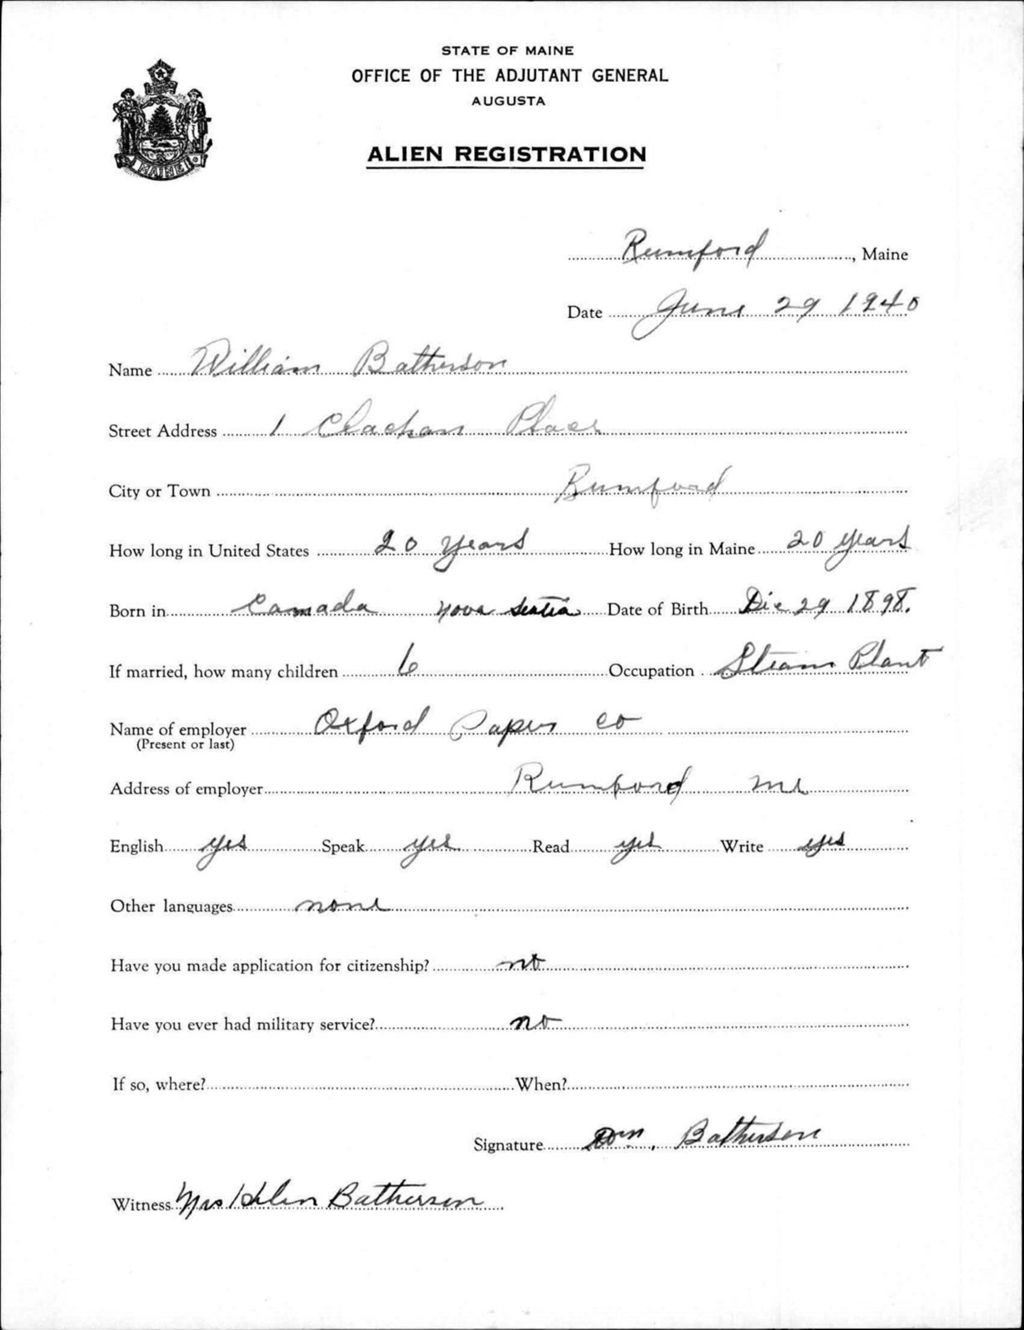 STATE OF MAINE
OFFICE OF THE ADJUTANT GENERAL
AUGUSTA
ALIEN REGISTRATION
MAINE
Rumford, Maine
Date June 29 1940
Name William Batherson
Street Address 1 Clachan Place
City or Town Rumford
How long in United States 20 years How long in Maine 20 years
Born in Canada Nova Scotia Date of Birth Dec 29 1898.
If married, how many children 6 Occupation Steam Plant
Name of employer Oxford Paper Co
(Present or last)
Address of employer Rumford Me
English yes Speak yes Read yes Write yes
Other languages none
Have you made application for citizenship? no
Have you ever had military service? no
If so, where? When?
Signature Wm. Batherson
Witness Mrs Helen Batherson